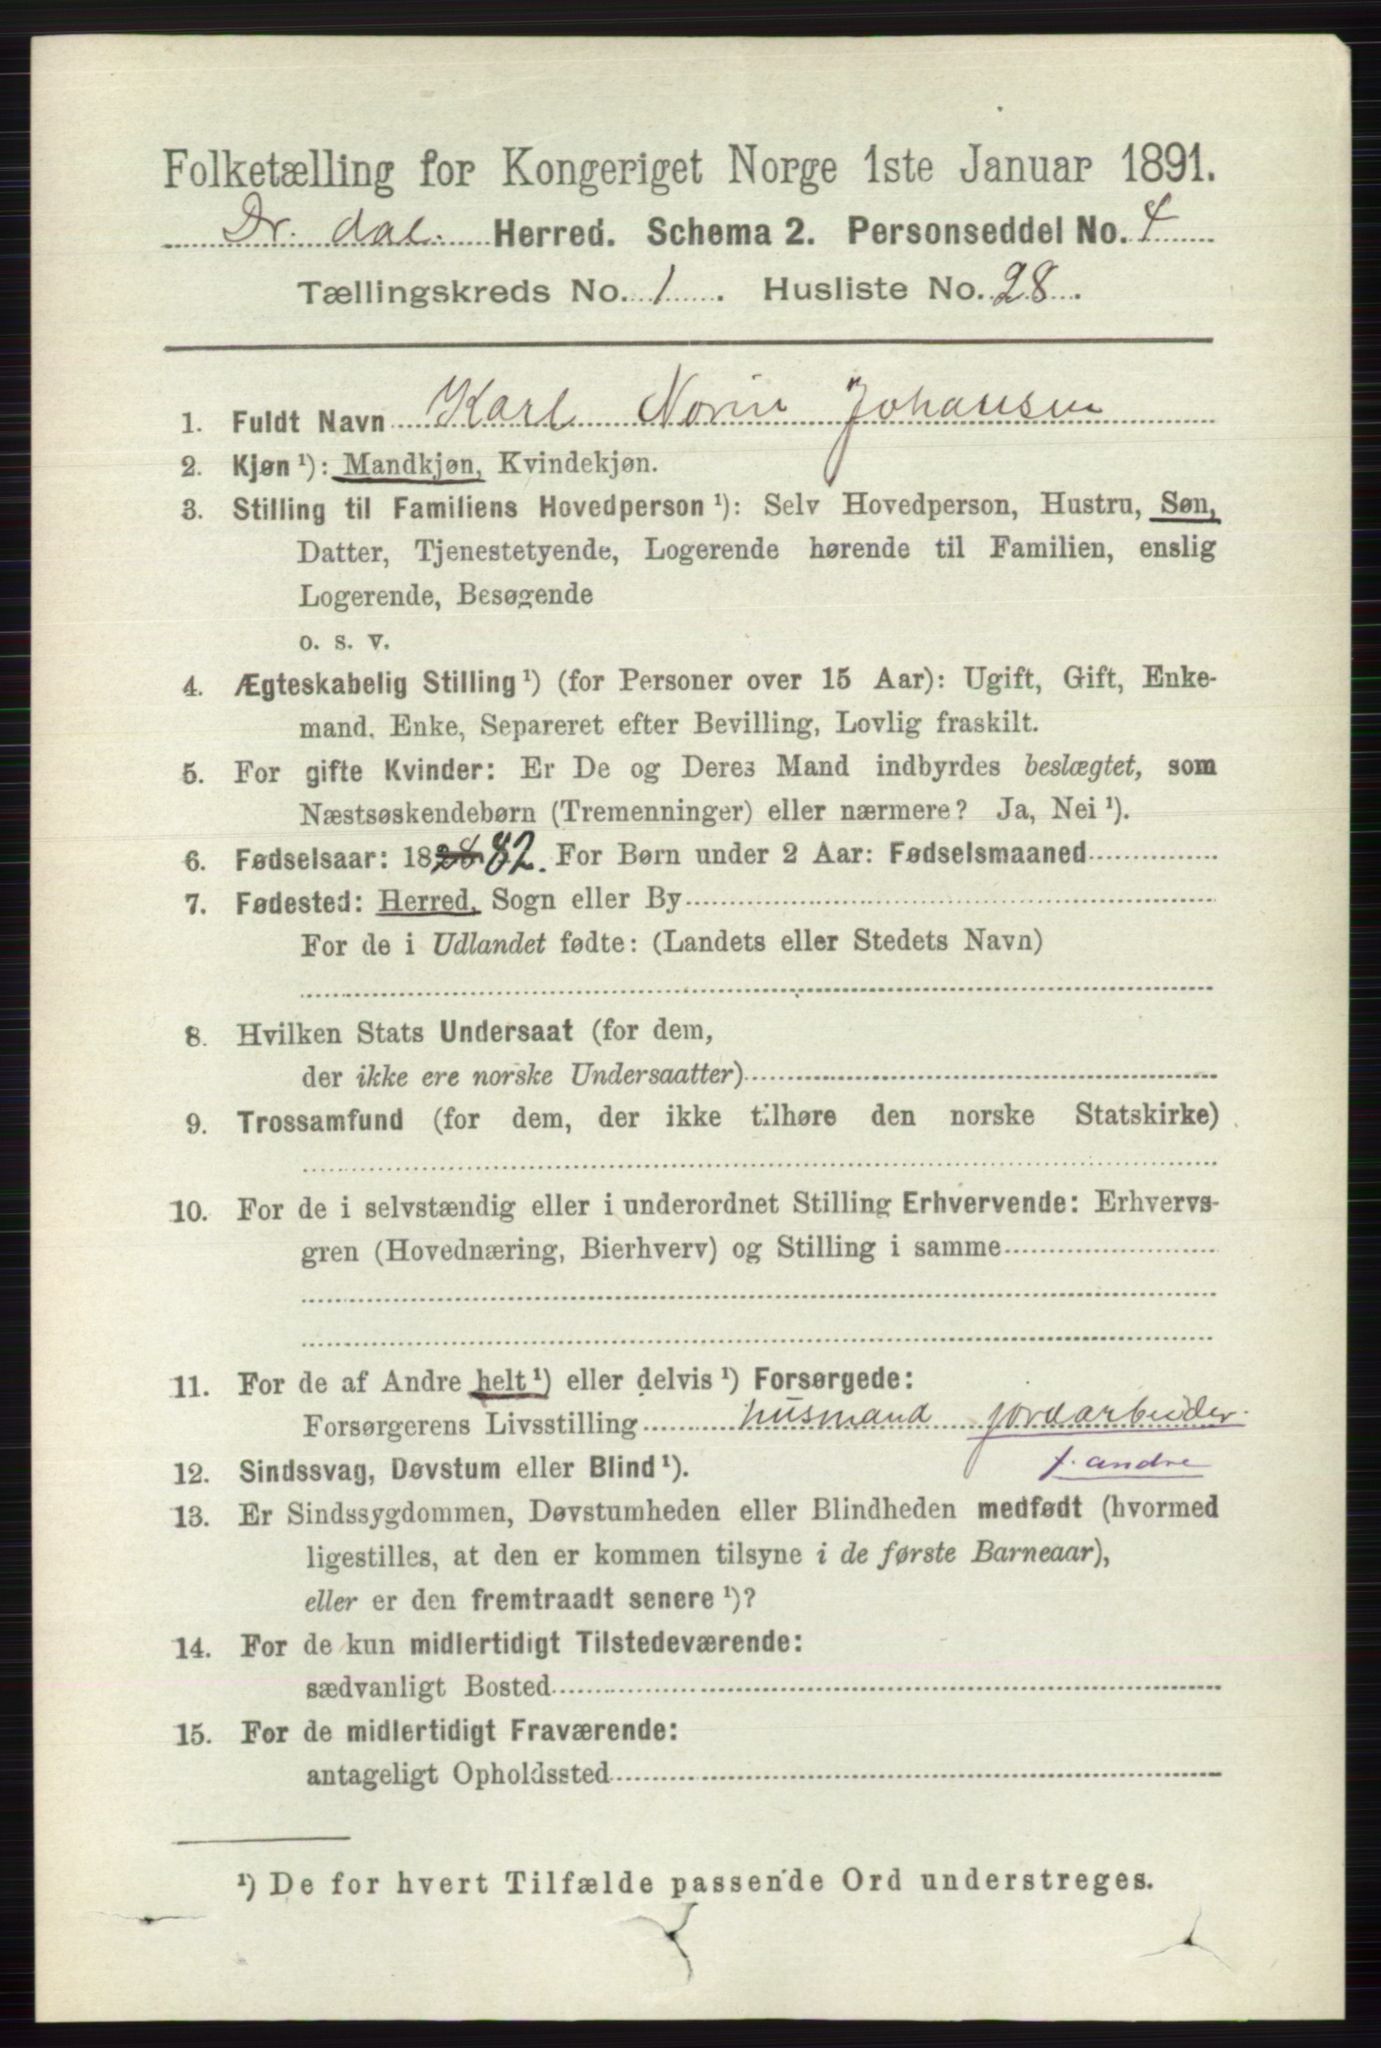 Folketælling for Kongeriget Norge 1ste Januar 1891.
Dr. dal. Herred. Schema 2. Personseddel No. 4
Tællingskreds No. 1. Husliste No. 28.
1. Fuldt Navn Karl Norin Johansen
2. Kjøn ¹): Mandkjøn, Kvindekjøn.
3. Stilling til Familiens Hovedperson ¹): Selv Hovedperson, Hustru, Søn,
Datter, Tjenestetyende, Logerende hørende til Familien, enslig
Logerende, Besøgende
o. s. v.
4. Ægteskabelig Stilling ¹) (for Personer over 15 Aar): Ugift, Gift, Enke-
mand, Enke, Separeret efter Bevilling, Lovlig fraskilt.
5. For gifte Kvinder: Er De og Deres Mand indbyrdes beslægtet, som
Næstsøskendebørn (Tremenninger) eller nærmere? Ja, Nei ¹).
6. Fødselsaar: 1828 82. For Børn under 2 Aar: Fødselsmaaned
7. Fødested: Herred, Sogn eller By
For de i Udlandet fødte: (Landets eller Stedets Navn)
8. Hvilken Stats Undersaat (for dem,
der ikke ere norske Undersaatter)
9. Trossamfund (for dem, der ikke tilhøre den norske Statskirke)
10. For de i selvstændig eller i underordnet Stilling Erhvervende: Erhvervs-
gren (Hovednæring, Bierhverv) og Stilling i samme
11. For de af Andre helt ¹) eller delvis ¹) Forsørgede:
Forsørgerens Livsstilling husmand jordarbeider.
f. andre
12. Sindssvag, Døvstum eller Blind ¹).
13. Er Sindssygdommen, Døvstumheden eller Blindheden medfødt (hvormed
ligestilles, at den er kommen tilsyne i de første Barneaar),
eller er den fremtraadt senere ¹)?
14. For de kun midlertidigt Tilstedeværende:
sædvanligt Bosted
15. For de midlertidigt Fraværende:
antageligt Opholdssted
¹) De for hvert Tilfælde passende Ord understreges.